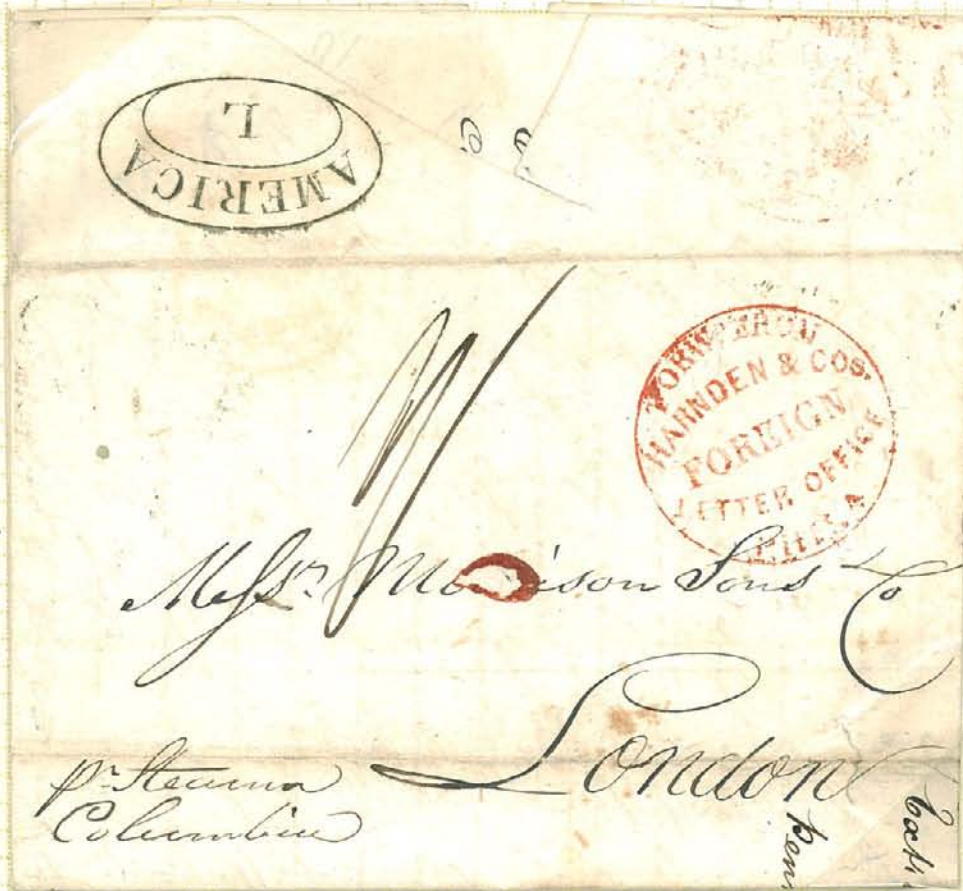 AMERICA
L
FORWD FROM
HARNDEN & COS.
FOREIGN
LETTER OFFICE
PHILA
Messrs. Morrison Sons & Co
London
pr. Steamer
Columbia